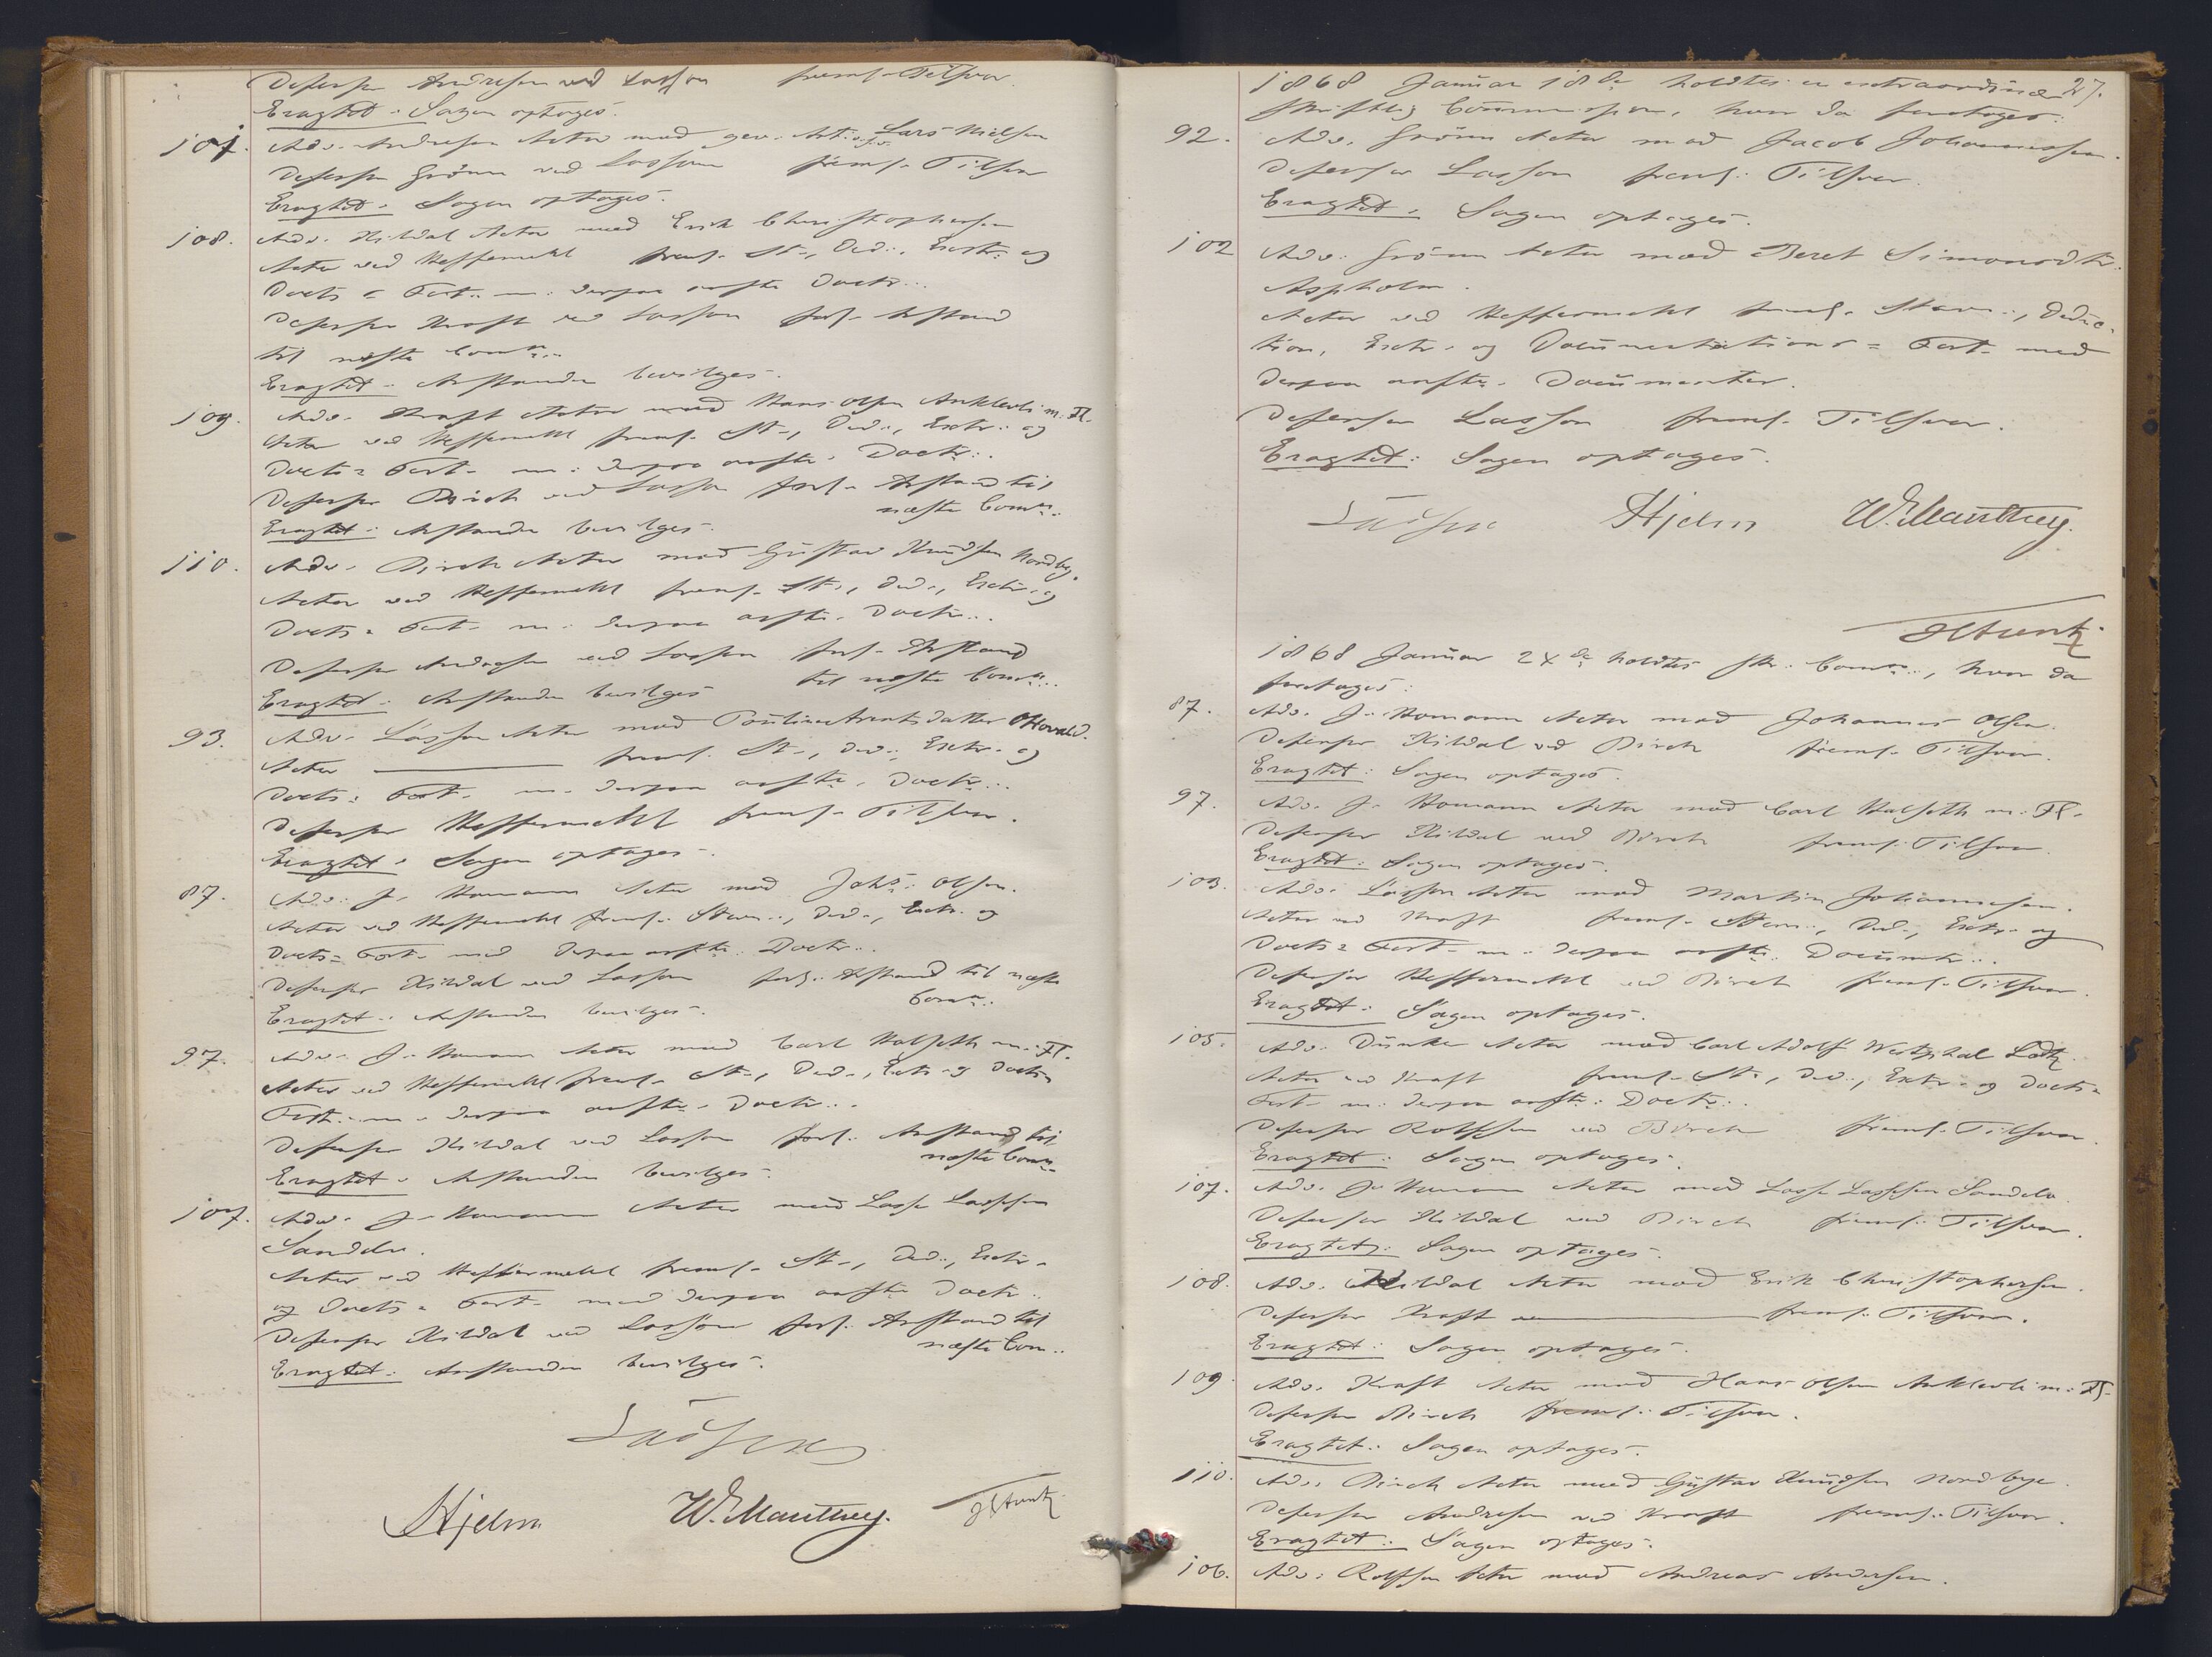 Defensor Andresen ved Lasson freml. Tilsvar.
Eragtet: Sagen optages.
101. Adv. Andresen Actor mod Lars Nielsen
Defensor Grönn ved Lasson freml. Tilsvar
Eragtet: Sagen optages.
108. Adv. Kildal Actor mod Erik Christophersen
Actor ved Heffermehl freml. St., Ded., Extr. og
Docts = Fort. m. derpaa anfte Doctr..
Defensor Kraft ved Lasson forl. Anstand
til næste Comn..
Eragtet: Anstanden bevilges.
109. Adv. Kraft Actor mod Hans Olsen Anklevli m. Fl.
Actor ved Heffermehl freml. St., Ded., Extr. og
Docts = Fort. m. derpaa anfte Doctr..
Defensor Birch ved Lasson forl. Anstand til
næste Comn..
Eragtet: Anstanden bevilges.
110. Adv. Birch Actor mod Gustav Knudsen Nordby.
Actor ved Heffermehl freml. St., Ded., Extr. og
Docts = Fort. m. derpaa anfte Doctr..
Defensor Andresen ved Lasson forl. Anstand
til næste Comn..
Eragtet: Anstanden bevilges
93. Adv. Lasson Actor mod Pouline Arentsdatter
Actor freml. St., Ded., Extr. og
Docts = Fort. m. derpaa anfte Doctr..
Defensor Heffermehl freml. Tilsvar.
Eragtet: Sagen optages.
87. Adv. J. Homann Actor mod Johs. Olsen.
Actor ved Heffermehl freml. Stevn., Ded., Extr. og
Docts = Fort. med derpaa anfte Doctr..
Defensor Kildal ved Lasson forl. Anstand til næste
Comn..
Eragtet: Anstanden bevilges.
97. Adv. J. Homann Actor mod Carl Halseth m. Fl.
Actor ved Heffermehl freml. St., Ded., Extr. og Docts =
Fort. m. derpaa anfte Doctr..
Defensor Kildal ved Lasson forl. Anstand til
næste Comn.
Eragtet: Anstanden bevilges.
107. Adv. J. Homann Actor mod Lasse Lassesen
Sandelv.
Actor ved Heffermehl freml. St., Ded., Extr.
og Docts = Fort. med derpaa anfte Doctr..
Defensor Kildal ved Lasson forl. Anstand til
næste Com..
Eragtet: Anstanden bevilges.
Lasson
Hjelm W. Manthey.
1868 Januar 18de holdtes en extraordinær 27.
skriftlig Commission, hvor da foretoges:
92. Adv. Grönn Actor mod Jacob Johannessen.
Defensor Lasson freml. Tilsvar.
Eragtet: Sagen optages.
102 Adv. Grönn Actor mod Beret Simonsdtr.
Aspholm.
Actor ved Heffermehl freml. Stevn., Deduc-
tion, Extr. og Documentations = Fort. med
derpaa anfte. Documenter.
Defensor Lasson freml. Tilsvar.
Eragtet: Sagen optages.
Lasson Hjelm W. Manthey.
1868 Januar 24de holdtes skr. Comn.., hvor da
foretoges:
87. Adv. J. Homann Actor mod Johannes Olsen.
Defensor Kildal ved Birch freml. Tilsvar.
Eragtet: Sagen optages.
97. Adv. J. Homann Actor mod Carl Halseth m. Fl.
Defensor Kildal ved Birch freml. Tilsvar.
Eragtet: Sagen optages.
103. Adv. Lasson Actor mod Martin Johannesen.
Actor ved Kraft freml. Stevn., Ded., Extr. og
Docts = Fort. m. derpaa anfte Documtr..
Defensor Heffermehl ved Birch freml. Tilsvar.
Eragtet: Sagen optages.
105. Adv. Dunker Actor mod Carl Adolf Westphal
Actor ved Kraft freml. St., Ded., Extr. og Docts =
Fort. m. derpaa anfte Doctr..
Defensor Rolfsen ved Birch freml. Tilsvar.
Eragtet: Sagen optages.
107. Adv. J. Homann Actor mod Lasse Lassesen Sandelv.
Defensor Kildal ved Birch freml. Tilsvar.
Eragtet: Sagen optages.
108. Adv. Kildal Actor mod Erik Christophersen.
Defensor Kraft freml. Tilsvar.
Eragtet: Sagen optages.
109. Adv. Kraft Actor mod Hans Olsen Anklevli m. Fl.
Defensor Birch freml. Tilsvar.
Eragtet: Sagen optages.
110. Adv. Birch Actor mod Gustav Knudsen Nordbye.
Defensor Andresen ved Kraft freml. Tilsvar.
Eragtet: Sagen optages.
106. Adv. Rolfsen Actor mod Andreas Andersen.